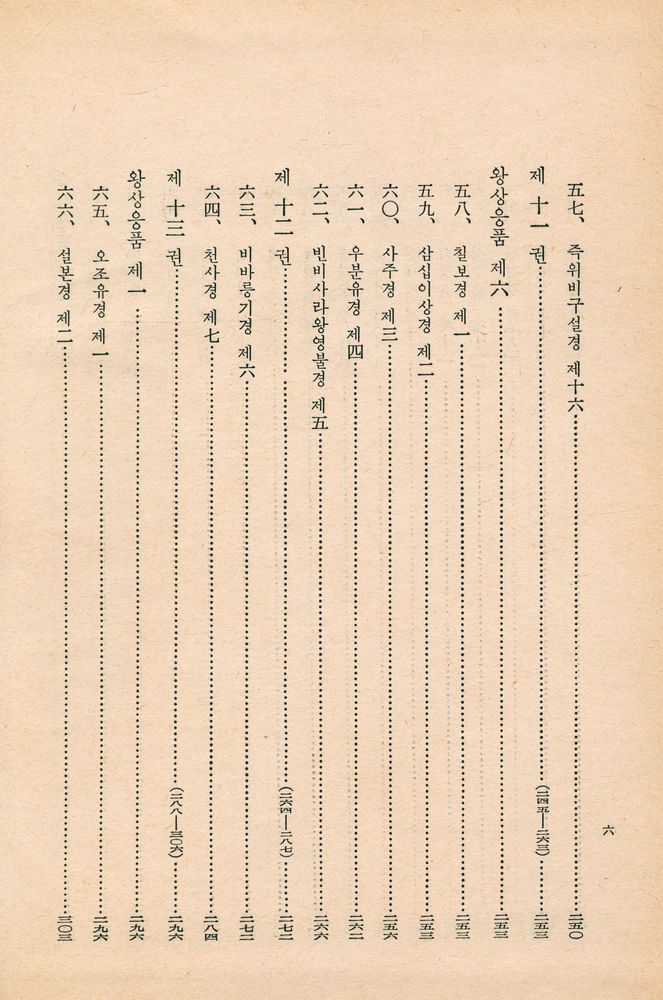 五七、 즉위비구설경 제十六……二五〇
제 十一 권……(二四五—二六三)……二五三
왕상응품 제六……二五三
五八、 칠보경 제一……二五三
五九、 삼십이상경 제二……二五三
六〇、 사주경 제三……二五六
六一、 우분유경 제四……二六二
六二、 빈비사라왕영불경 제五……二六六
제 十二 권……(二六四—二八七)……二七二
六三、 비바릉기경 제六……二七二
六四、 천사경 제七……二八四
제 十三 권……(二八八—三〇六)……二九六
왕상응품 제一……二九六
六五、 오조유경 제一……二九六
六六、 설본경 제二……三〇三
六